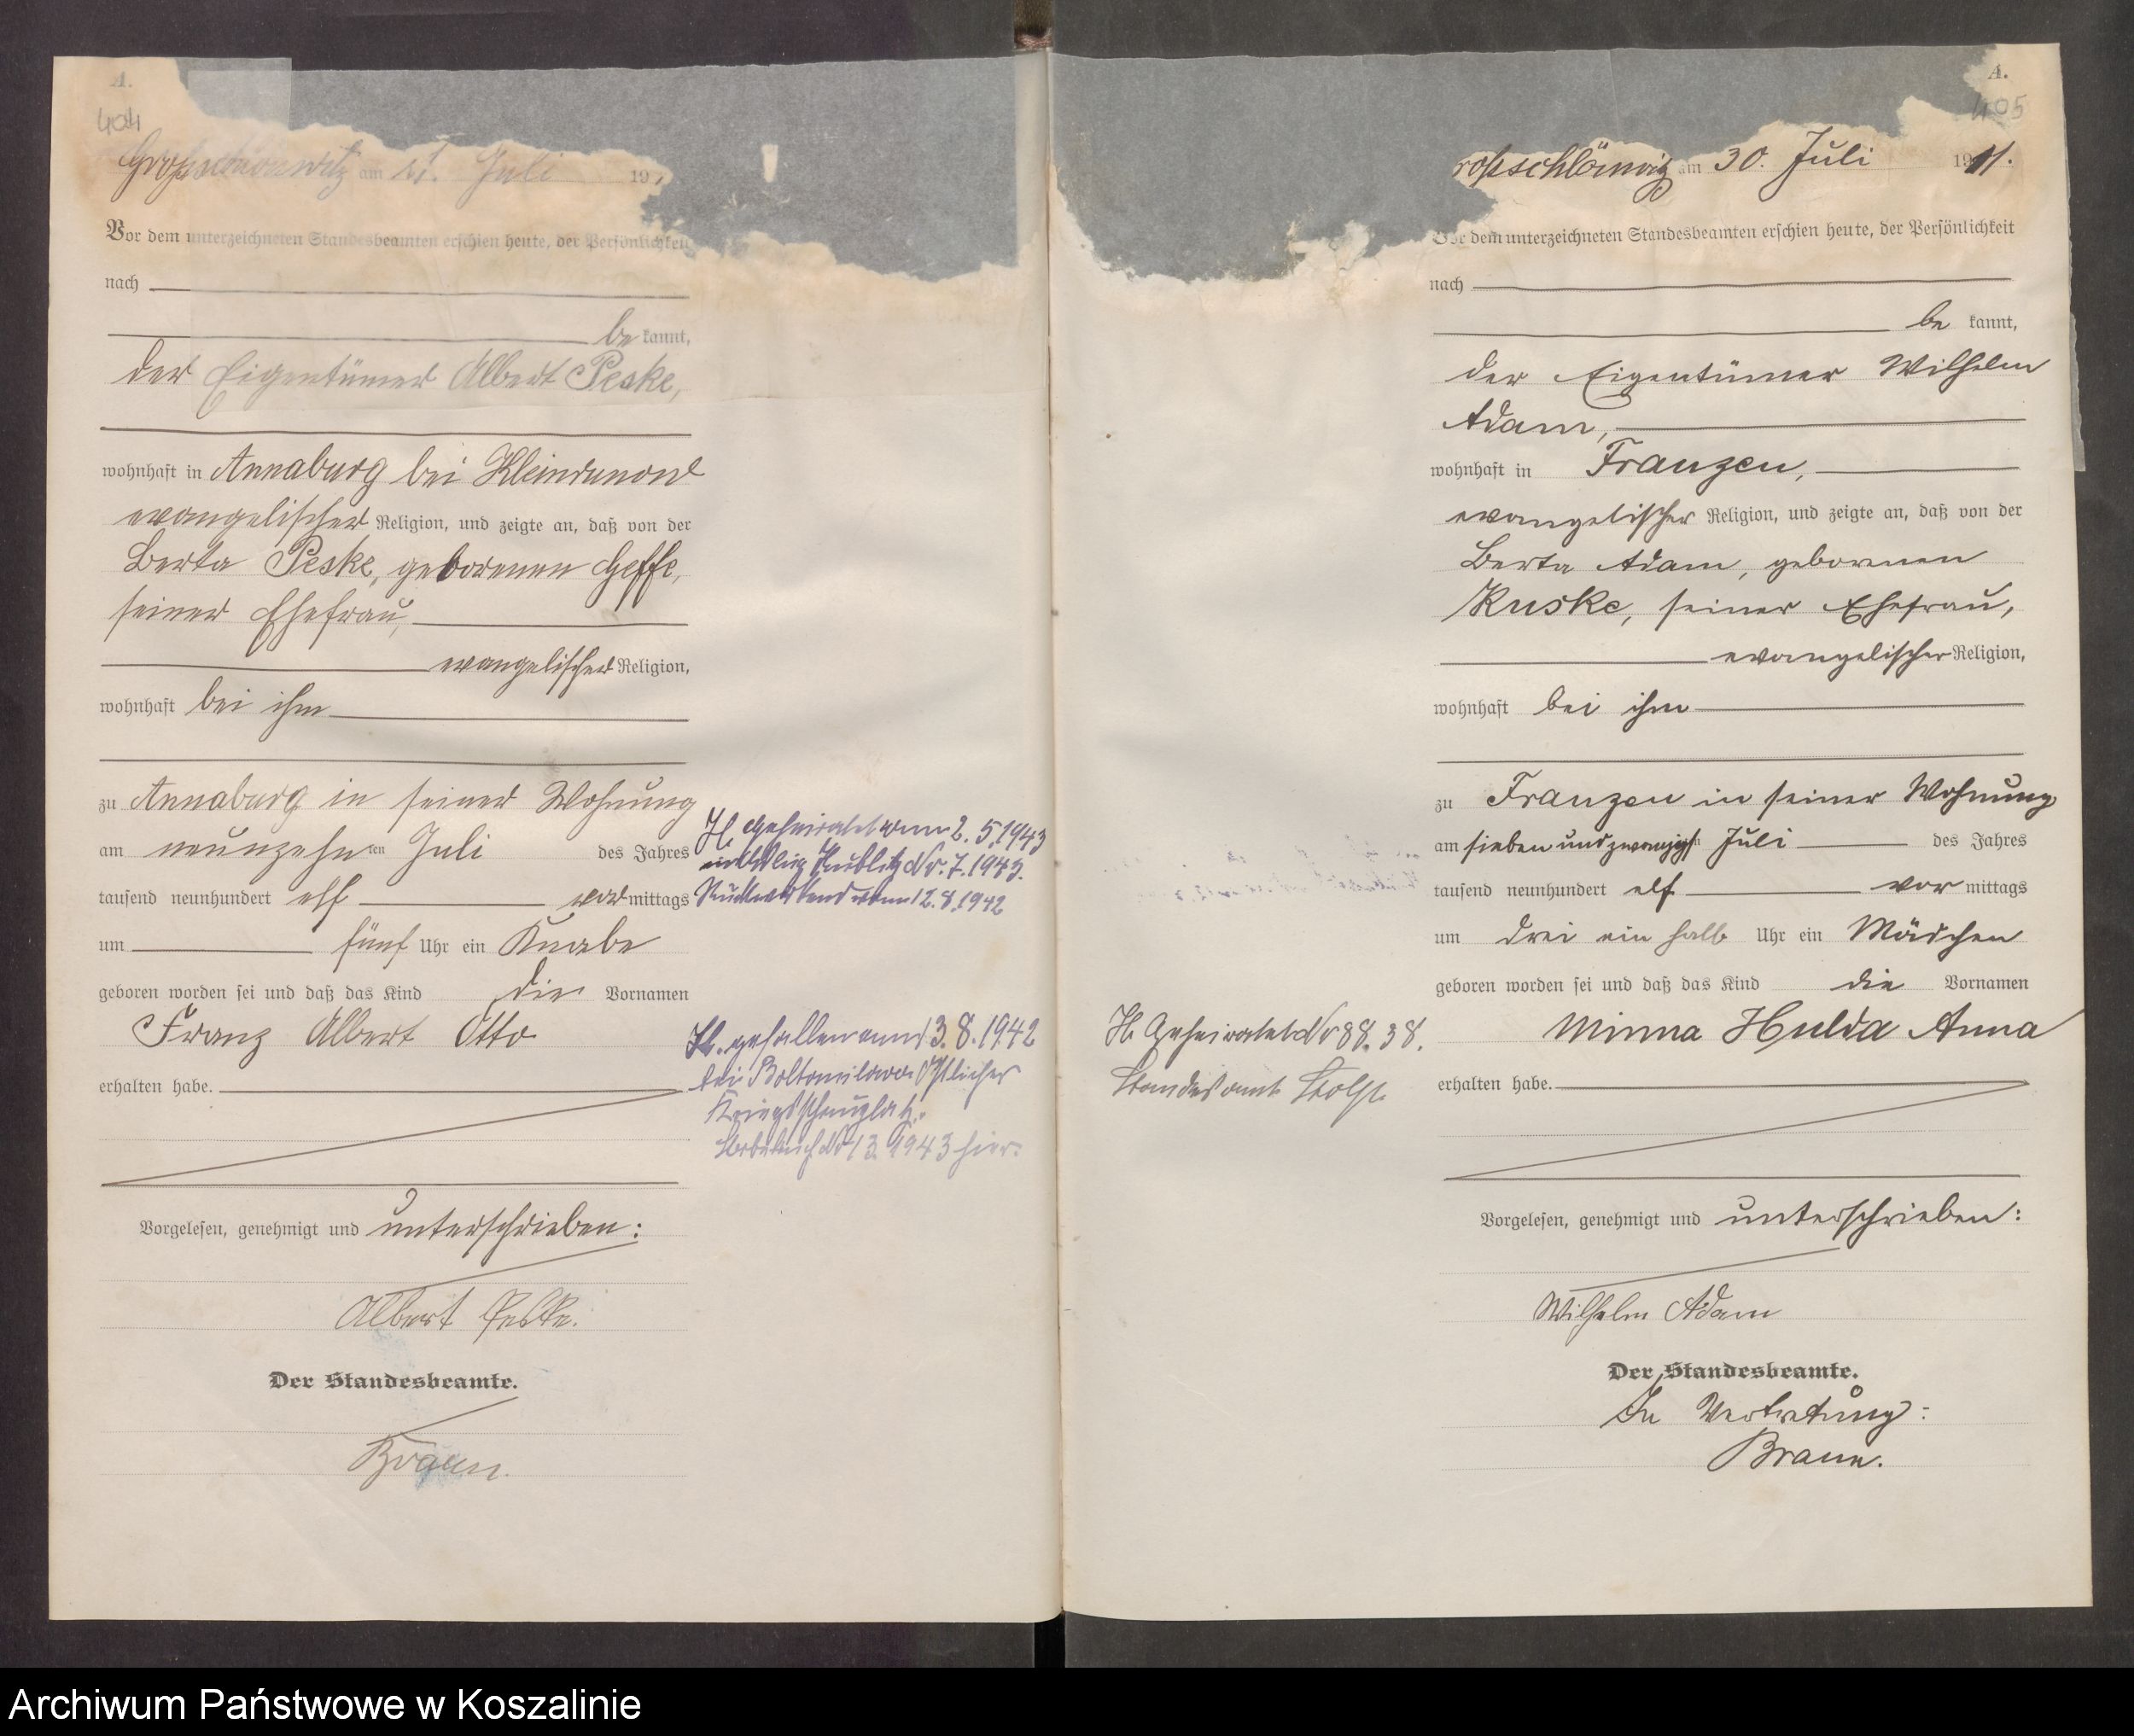 A.
404
am 21. Juli 19
Vor dem unterzeichneten Standesbeamten erschien heute, der Persönlichkeit
nach
be kannt,
der Eigentümer Albert Peske,
wohnhaft in Annaburg bei Kleinrunow
evangelischer Religion, und zeigte an, daß von der
Berta Peske, geborenen Geffe,
seiner Ehefrau,
evangelischer Religion,
wohnhaft bei ihm
zu Annaburg in seiner Wohnung
am neunzehn ten Juli des Jahres
tausend neunhundert elf vor mittags
um fünf Uhr ein Knabe
geboren worden sei und daß das Kind die Vornamen
Franz Albert Otto
erhalten habe.
Vorgelesen, genehmigt und unterschrieben:
Albert Peske.
Der Standesbeamte.
Braun.
H. Geheiratet am 2.5.1943
Bublitz Nr. 7.1943.
Rückwirkend vom 12.8.1942
St. gefallen am 13.8.1942
bei Östlicher
Kriegsschauplatz.
Sterbebuch Nr 13.1943 hier.
A.
405
roßschlönwitz am 30. Juli 1911.
Vor dem unterzeichneten Standesbeamten erschien heute, der Persönlichkeit
nach
be kannt,
der Eigentümer Wilhelm
Adam,
wohnhaft in Franzen,
evangelischer Religion, und zeigte an, daß von der
Berta Adam, gebornen
Kuske, seiner Ehefrau,
evangelischer Religion,
wohnhaft bei ihm
zu Franzen in seiner Wohnung
am sieben und zwanzigst Juli des Jahres
tausend neunhundert elf vor mittags
um drei ein halb Uhr ein Mädchen
geboren worden sei und daß das Kind die Vornamen
Minna Hulda Anna
erhalten habe.
Vorgelesen, genehmigt und unterschrieben:
Wilhelm Adam
Der Standesbeamte.
In Vertretung:
Braun.
H. Geheiratet Nr 88.38.
Standesamt Stolp.
Archiwum Państwowe w Koszalinie